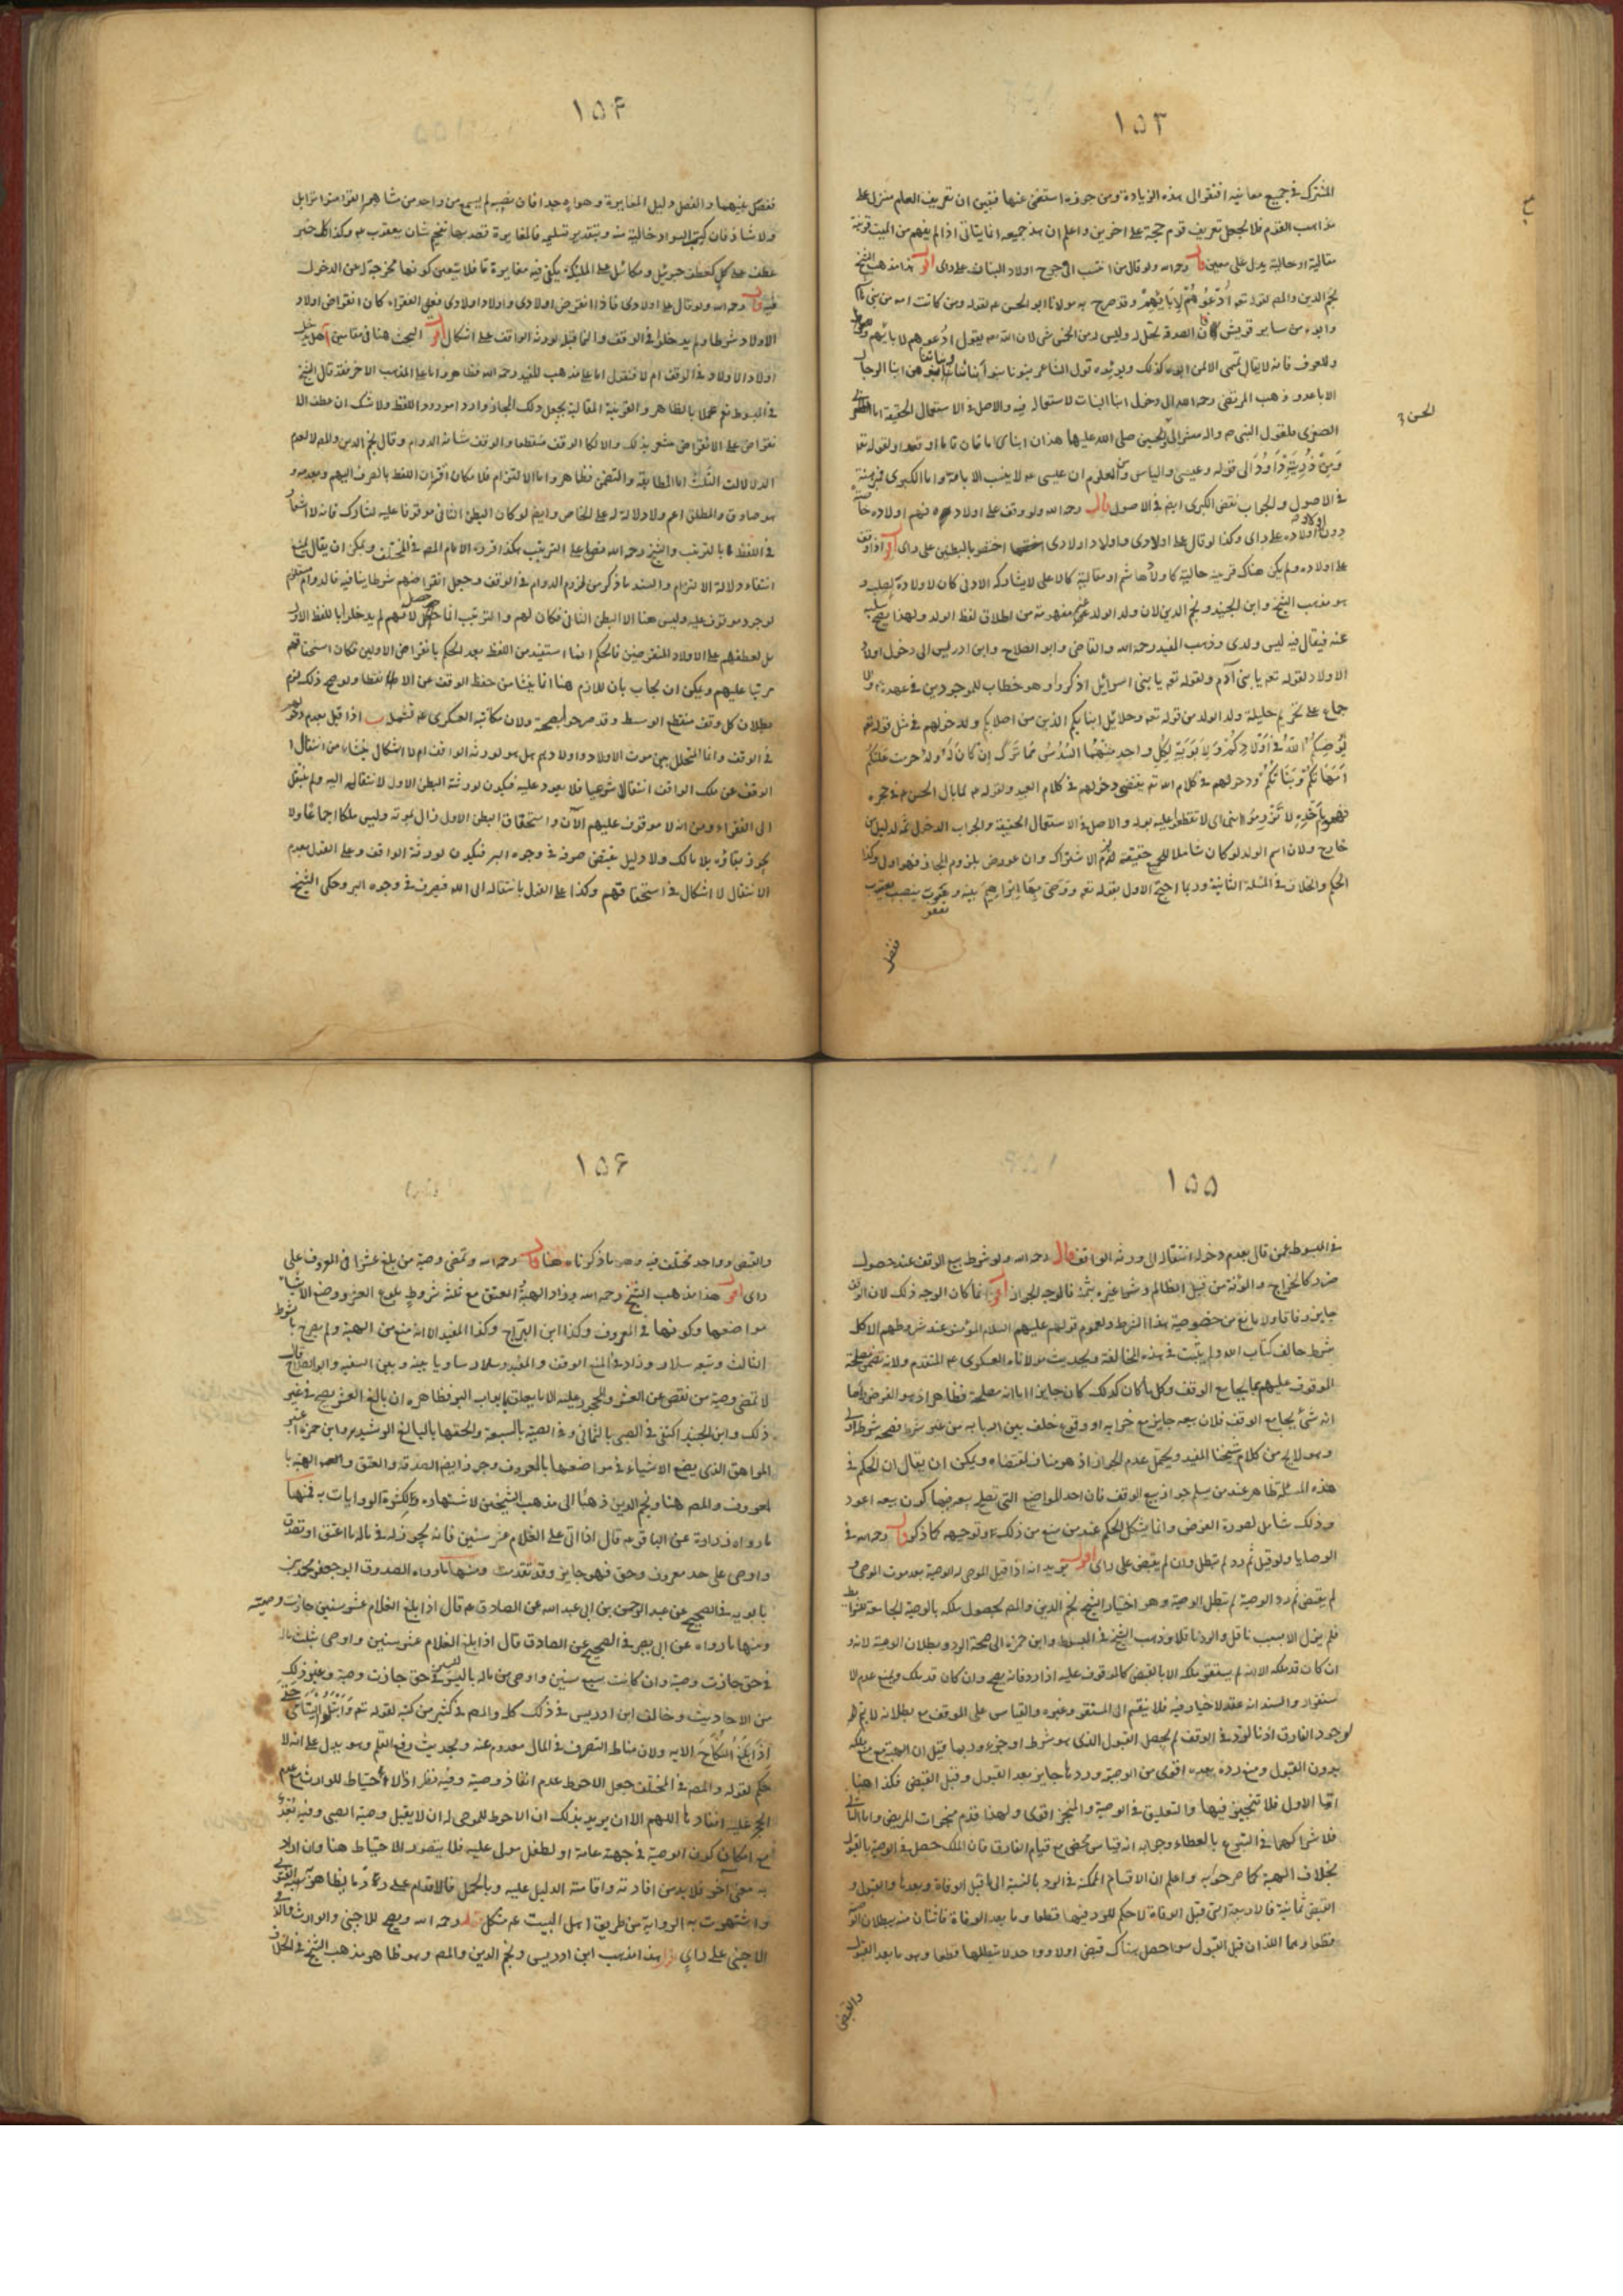 ١٥٣
المشترك في جميع معانيه افتقر الى هذه الزيادة ومن جوزه استغنى عنها فتبين ان تعريف العلم منزل على
مذاهب القوم فلا يجعل تعريف قوم حجة على اخرين واعلم ان هذا جميعه انما يتأتى اذا لم يفهم من الميت قرينة
مقالية او حالية يدل على معين قال رحمه الله ولو قال من انتسب الى خرج اولاد البنات على راى اقول هذا مذهب الشيخ
نجم الدين والمص لقوله تعه اُدْعُوهُمْ لِآبَائِهِمْ وقد صرح به مولانا ابو الحسن ع م لقوله ومن كانت امه من بني هاشم
وابوه من ساير قريش فان الصدقة تحل له وليس له من الخمس شى لان الله تعه يقول ادعوهم لابائهم
وللعرف فانه لا يقال تميمى الا لمن ابوه كذلك ويؤيده قول الشاعر بنونا بنو أبنائنا وبناتنا بنوهن ابنا الرجال
الاباعد وذهب المرتضى رحمه الله الى دخول ابنا البنات لاستعماله فيه والاصل في الاستعمال الحقيقة اما
الصغرى فلقول النبي ص واله مشيرا الى الحسن والحسين صلى الله عليهما هذان ابناى امامان قاما او قعدا ولقوله تعه
وَمِنْ ذُرِّيَّتِهِ دَاوُدَ الى قوله وعيسى والياس ومن المعلوم ان عيسى ع لا ينسب الا بامه واما الكبرى فمبينة
في الاصول والجواب نقض الكبرى ايض في الاصول قال رحمه الله ولو وقف على اولاده فهم اولاده خاصة
دون اولاد اولاده على راى وكذا لو قال على اولادى واولاد اولادى اختص بالبطنين على راى اقول اذا وقف
على اولاده ولم يكن هناك قرينة حالية كاولاد هاشم او مقالية كالاعلى لا يشاركه الادنى كان لاولاده لصلبه
هو مذهب الشيخ وابن الجنيد ونجم الدين لان ولد الولد غير مفهوم من اطلاق لفظ الولد ولهذا يصح سلبه
عنه فيقال فيه ليس ولدى وذهب المفيد رحمه الله والقاضى وابو الصلاح وابن ادريس الى دخول اولاد
الاولاد لقوله تعه يا بني آدم ولقوله تعه يا بنى اسرائيل اذكروا وهو خطاب للموجودين في عهده
جماع على تحريم حليلة ولد الولد من قوله تعه وحلائل ابنائكم الذين من اصلابكم ولدخولهم في مثل قوله تعه
يُوصِيكُمُ اللَّهُ فِي أَوْلَادِكُمْ وَلِأَبَوَيْهِ لِكُلِّ وَاحِدٍ مِنْهُمَا السُّدُسُ مِمَّا تَرَكَ إِنْ كَانَ لَهُ وَلَدٌ حرمت عليكم
أُمَّهَاتُكُمْ وَبَنَاتُكُمْ ودخولهم في كلام الله تعه يقتضى دخولهم في كلام العبد ولقوله ص لما بال الحسن ع في حجره
لا تزرموا ابنى اى لا تقطعوا عليه بوله والاصل في الاستعمال الحقيقة والجواب الدخول ثمه لدليل من
خارج ولان اسم الولد لو كان شاملا للجميع حقيقة لزم الاشتراك وان عورض بلزوم المجاز فهو اولى وكذا
الحكم والخلاف في المسئلة الثانية وربما احتج الاول بقوله تعه ووَصَّى بِهَا إِبْرَاهِيمُ بَنِيهِ وَيَعْقُوبَ بنصب يعقوب
الحسن
ففصل
١٥٤
ففصل بينهما والفصل دليل المغايرة وهو واه جدا فان نصبه لم يسمع من واحد من مشاهير القراء متواتر ابل
ولا شاذ فان كتب السواد خالية منه وبتقدير تسليمه فالمغايرة قصد بها تفخيم شان يعقوب ع م وكذا كل خبر
عطف على كل كعطف جبرئيل وميكائيل على الملئكة يكفى فيه مغايرة ما فلا يتعين كونها مخرجة له عن الدخول
فيه قال رحمه الله ولو قال على اولادى فاذا انقرض اولادى واولاد اولادى فعلى الفقراء كان انقراض اولاد
الاولاد شرطا ولم يدخلوا في الوقف والنما قبله لورثة الواقف على اشكال اقول البحث هنا في مقامين آ هل يدخل
اولاد الاولاد في الوقف ام لا فنقول اما على مذهب المفيد رحمه الله فظاهر واما على المذهب الاخر فقد قال الشيخ
في المبسوط نعم عملا بالظاهر والقرينة المقالية بجعل ذلك المجاز وارد امور دو اللفظ ولا شك ان عطف الا
نقراض على الانقراض مشعر بذلك والا لكان الوقف منقطعا والوقف شانه الدوام وقال نجم الدين والمص لا لعدم
الدلالات الثلث اما المطابقة والتضمن فظاهر واما الالتزام فلا مكان اقتران اللفظ بالصرف اليهم وبعدمه و
هو صادق والمطلق اعم ولا دلالة له على الخاص وايض لو كان البطن الثانى موقوفا عليه لشارك فانه لا اشعار
في اللفظ بالترتيب والشيخ رحمه الله نص على الترتيب هكذا قرره الامام المص في المختلف ويمكن ان يقال يمنع
انتفاء دلالة الالتزام والسند ما ذكر من لزوم الدوام في الوقف وجعل انقراضهم شرطا ينافيه فالدوام مستلزم
لوجود موقوف عليه وليس هنا الا البطن الثانى فكان لهم والترتيب انما حصل لانهم لم يدخلوا باللفظ الاول
بل لعطفهم على الاولاد المنقرضين فالحكم انما استفيد من اللفظ بعد الحكم بانقراض الاولين فكان استحقاقهم
مرتبا عليهم ويمكن ان يجاب بان اللازم هنا انما ينشا من حفظ الوقف عن الانقطاع ولو صح ذلك لزم
بطلان كل وقف منقطع الوسط وقد صرحوا بصحته ولان مكاتبة العسكرى ع م تشمله ب اذا قيل بعدم دخولهم
في الوقف وانما المتخلل بين موت الاولاد واولادهم هل هو لورثة الواقف ام لا اشكال ينشاء من انتقال ا
لوقف عن ملك الواقف انتقالا شرعيا فلا يعود عليه فيكون لورثة البطن الاول لانتقاله اليه ولم ينتقل
الى الفقراء ومن انه لا موقوف عليهم الآن واستحقاق البطن الاول زال بموته وليس ملكا اجماعا ولا
يجوز بقاؤه بلا مالك ولا دليل يقتضى صرفه في وجوه البر فيكون لورثة الواقف وعلى القول بعدم
الانتقال لا اشكال في استحقاقهم وكذا على القول بانتقاله الى الله فيصرف في وجوه البر وحكى الشيخ
١٥٥
في المبسوط عمن قال بعدم دخوله انتقاله الى ورثة الواقف قال رحمه الله ولو شرط بيع الوقف عند حصول
ضرر كالخراج والمؤنة من قبل الظالم وشراء غيره بثمنه فالوجه الجواز اقول انما كان الوجه ذلك لان الوقف
جايز وفاقا ولا مانع من خصوصية هذا الشرط ولعموم قولهم عليهم السلام المؤمنون عند شروطهم الا كل
شرط خالف كتاب الله ولم يثبت في هذه المخالفة ولحديث مولانا العسكرى ع م المتقدم ولانه يتضمن مصلحة
الموقوف عليهم بما يجامع الوقف وكل ما كان كذلك كان جايزا اما انه مصلحة فظاهر اذ هو الفرض واما
انه شئ يجامع الوقف فلان بيعه جايز مع خرابه او وقوع خلف بين اربابه من غير شرط فصحه شرطه اولى
وهو لايح من كلام شيخنا المفيد ويحتمل عدم الجواز اذ هو مناف لمقتضاه ويمكن ان يقال ان الحكم في
هذه المسئلة ظاهر عند من يسلم جواز بيع الوقف فان احد المواضع التى تصلح بمعرضها كون بيعه اعود
وذلك شامل لصورة الفرض وانما يشكل الحكم عند من منع من ذلك وتوجيهه كما ذكر قال رحمه الله في
الوصايا ولو قبل ثم رد لم تبطل وان لم يقبض على راى اقول يريد انه اذا قبل الموصى له الوصية بعد موت الموصى و
لم يقبض ثم رد الوصية لم تبطل الوصية وهو اختيار الشيخ نجم الدين والمص لحصول ملكه بالوصية الجامعة للشرايط
فلم يزل الا بسبب ناقل والرد ناقلا وذهب الشيخ في المبسوط وابن حمزة الى صحة الرد وبطلان الوصية لانه و
ان كان قد ملكه الا انه لم يستقر ملكه الا بالقبض كالموقوف عليه اذا رد فانه يصح وان كان قد ملك ويمنع عدم الا
ستقرار والسند انه عقد لا خيار فيه فلا ينقسم الى المستقر وغيره والقياس على الوقف مع بطلانه لا يتم
لوجود الفارق اذ بالرد في الوقف لم يحصل القبول الذى هو شرط او جزء وربما قيل ان الهبة يمنع ملكه
بدون القبول ومنع رده بعده اقوى من الوصية وردها جايز بعد القبول وقبل القبض فكذا هنا
امّا الاول فلا تنجيز فيها والتعليق في الوصية والمنجز اقوى ولهذا قدم منجزات المريض واما الثانى
فلاشتراكهما في التبرع بالعطاء وجوابه انه قياس محض مع قيام الفارق فان الملك حصل في الوصية بالقبول
بخلاف الهبة كما صرحوا به واعلم ان الاقسام الممكنة في الرد بالنسبة الى ما قبل الوفاة وبعدها والقبول و
القبض ثمانية فالاربعة التى قبل الوفاة لا حكم للرد فيها قطعا وما بعد الوفاة فاثنان منه يبطلان الوصية
قطعا وهما اللذان قبل القبول سوا حصل هناك قبض اولا وواحد لا يبطلها قطعا وهو ما بعد القبول
والقبض
١٥٦
والقبض وواحد مختلف فيه وهو ما ذكرناه هنا قال رحمه الله وتمضى وصية من بلغ عشرا في المعروف على
راى اقول هذا مذهب الشيخ رحمه الله وزاد الهبة والعتق مع ثلثة شروط بلوغ العشر ووضع الاشياء
مواضعها وكونها في المعروف وكذا ابن البراج وكذا المفيد الا انه منع من الهبة ولم يصرح بالشرط
الثالث وتبعه سلار وزاد في المنع الوقف والمفيد وسلار ساويا بينه وبين السفيه وابو الصلاح قال
لا تمضى وصية من نقص عن العشر والمحجور عليه الا ما يتعلق بابواب البر فظاهره ان بالغ العشر يصح في غير
ذلك وابن الجنيد اكتفى في الصبى بالثمانى وفي الصبية بالسبعة والحقها بالبالغ الرشيد وابن حمزة اعتبر
المراهق الذى يضع الاشياء في مواضعها بالمعروف وجوز ايض الصدقة والعتق والهبة با
لمعروف والمص هنا ونجم الدين ذهبا الى مذهب الشيخين لاشتهاره ولكثرة الروايات به فمنها
ما رواه زرارة عن الباقر ع م قال اذا اتى على الغلام عشر سنين فانه يجوز له في ماله ما اعتق او تصدق
واوصى على حد معروف وحق فهو جايز وقد تقدمت ومنها ما رواه الصدوق ابو جعفر محمد بن
بابويه في الصحيح عن عبد الرحمن بن ابى عبد الله عن الصادق ع م قال اذا بلغ الغلام عشر سنين جازت وصيته
ومنها ما رواه عن ابى بصير في الصحيح عن الصادق قال اذا بلغ الغلام عشر سنين واوصى بثلث ماله
في حق جازت وصيته وان كانت سبع سنين واوصى من ماله باليسير في حق جازت وصيته وغير ذلك
من الاحاديث وخالف ابن ادريس في ذلك كله والمص في كثير من كتبه لقوله تعه وَابْتَلُوا الْيَتَامَى حَتَّى
إِذَا بَلَغُوا النِّكَاحَ الايه ولان مناط التصرف في المال معدوم عنه ولحديث رفع القلم وهو يدل على انه لا
حكم لقوله والمص في المختلف جعل الاحوط عدم انفاذ وصيته وفيه نظر اذ لا احتياط للوارث مع عدم
الحجر عليه انفاذها اللهم الا ان يريد بذلك ان الاحوط للموصى له ان لا يقبل وصية الصبى وفيه بُعْدٌ
مع امكان كون الوصية في جهة عامة او لطفل مولى عليه فلا يتصور الاحتياط هنا وان اراد
به معنى آخر فلا بد من افادته واقامة الدليل عليه وبالجملة فالاقدام على رد ما تظاهرت به الفتوى
واشتهرت به الرواية من طريق اهل البيت ع م مشكل قال رحمه الله ويصح للاجنبى والوارث
الاجنبى على راىٍ اقول هذا مذهب ابن ادريس ونجم الدين والمص وهو ظاهر مذهب الشيخ في الخلاف